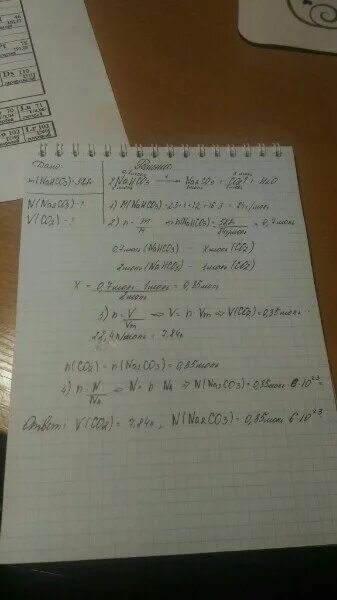 Дано:
Решение
m(NaHCO3)=58,8г
0,7моль x моль
2NaHCO3 →t Na2CO3 + CO2↑ + H2O
2моль 1моль
N(Na2CO3)-?
V(CO2)-?
1) M(NaHCO3)=23+1+12+16·3=84г/моль
2) n = m/M ⇒ n(NaHCO3) = /84г/моль = 0,7моль
0,7моль(NaHCO3) - x моль(CO2)
2моль(NaHCO3) - 1моль(CO2)
X = 0,7моль·1моль/2моль = 0,35моль
3) n = V/Vm ⇒ V = n·Vm ⇒ V(CO2)=0,35моль·
22,4л/моль = 7,84л
n(CO2) = n(Na2CO3) = 0,35моль
4) n = N/NA ⇒ N = n·NA ⇒ N(Na2CO3)=0,35моль·6·10²³=
Ответ: V(CO2) = 7,84л, N(Na2CO3) = 0,35моль·6·10²³